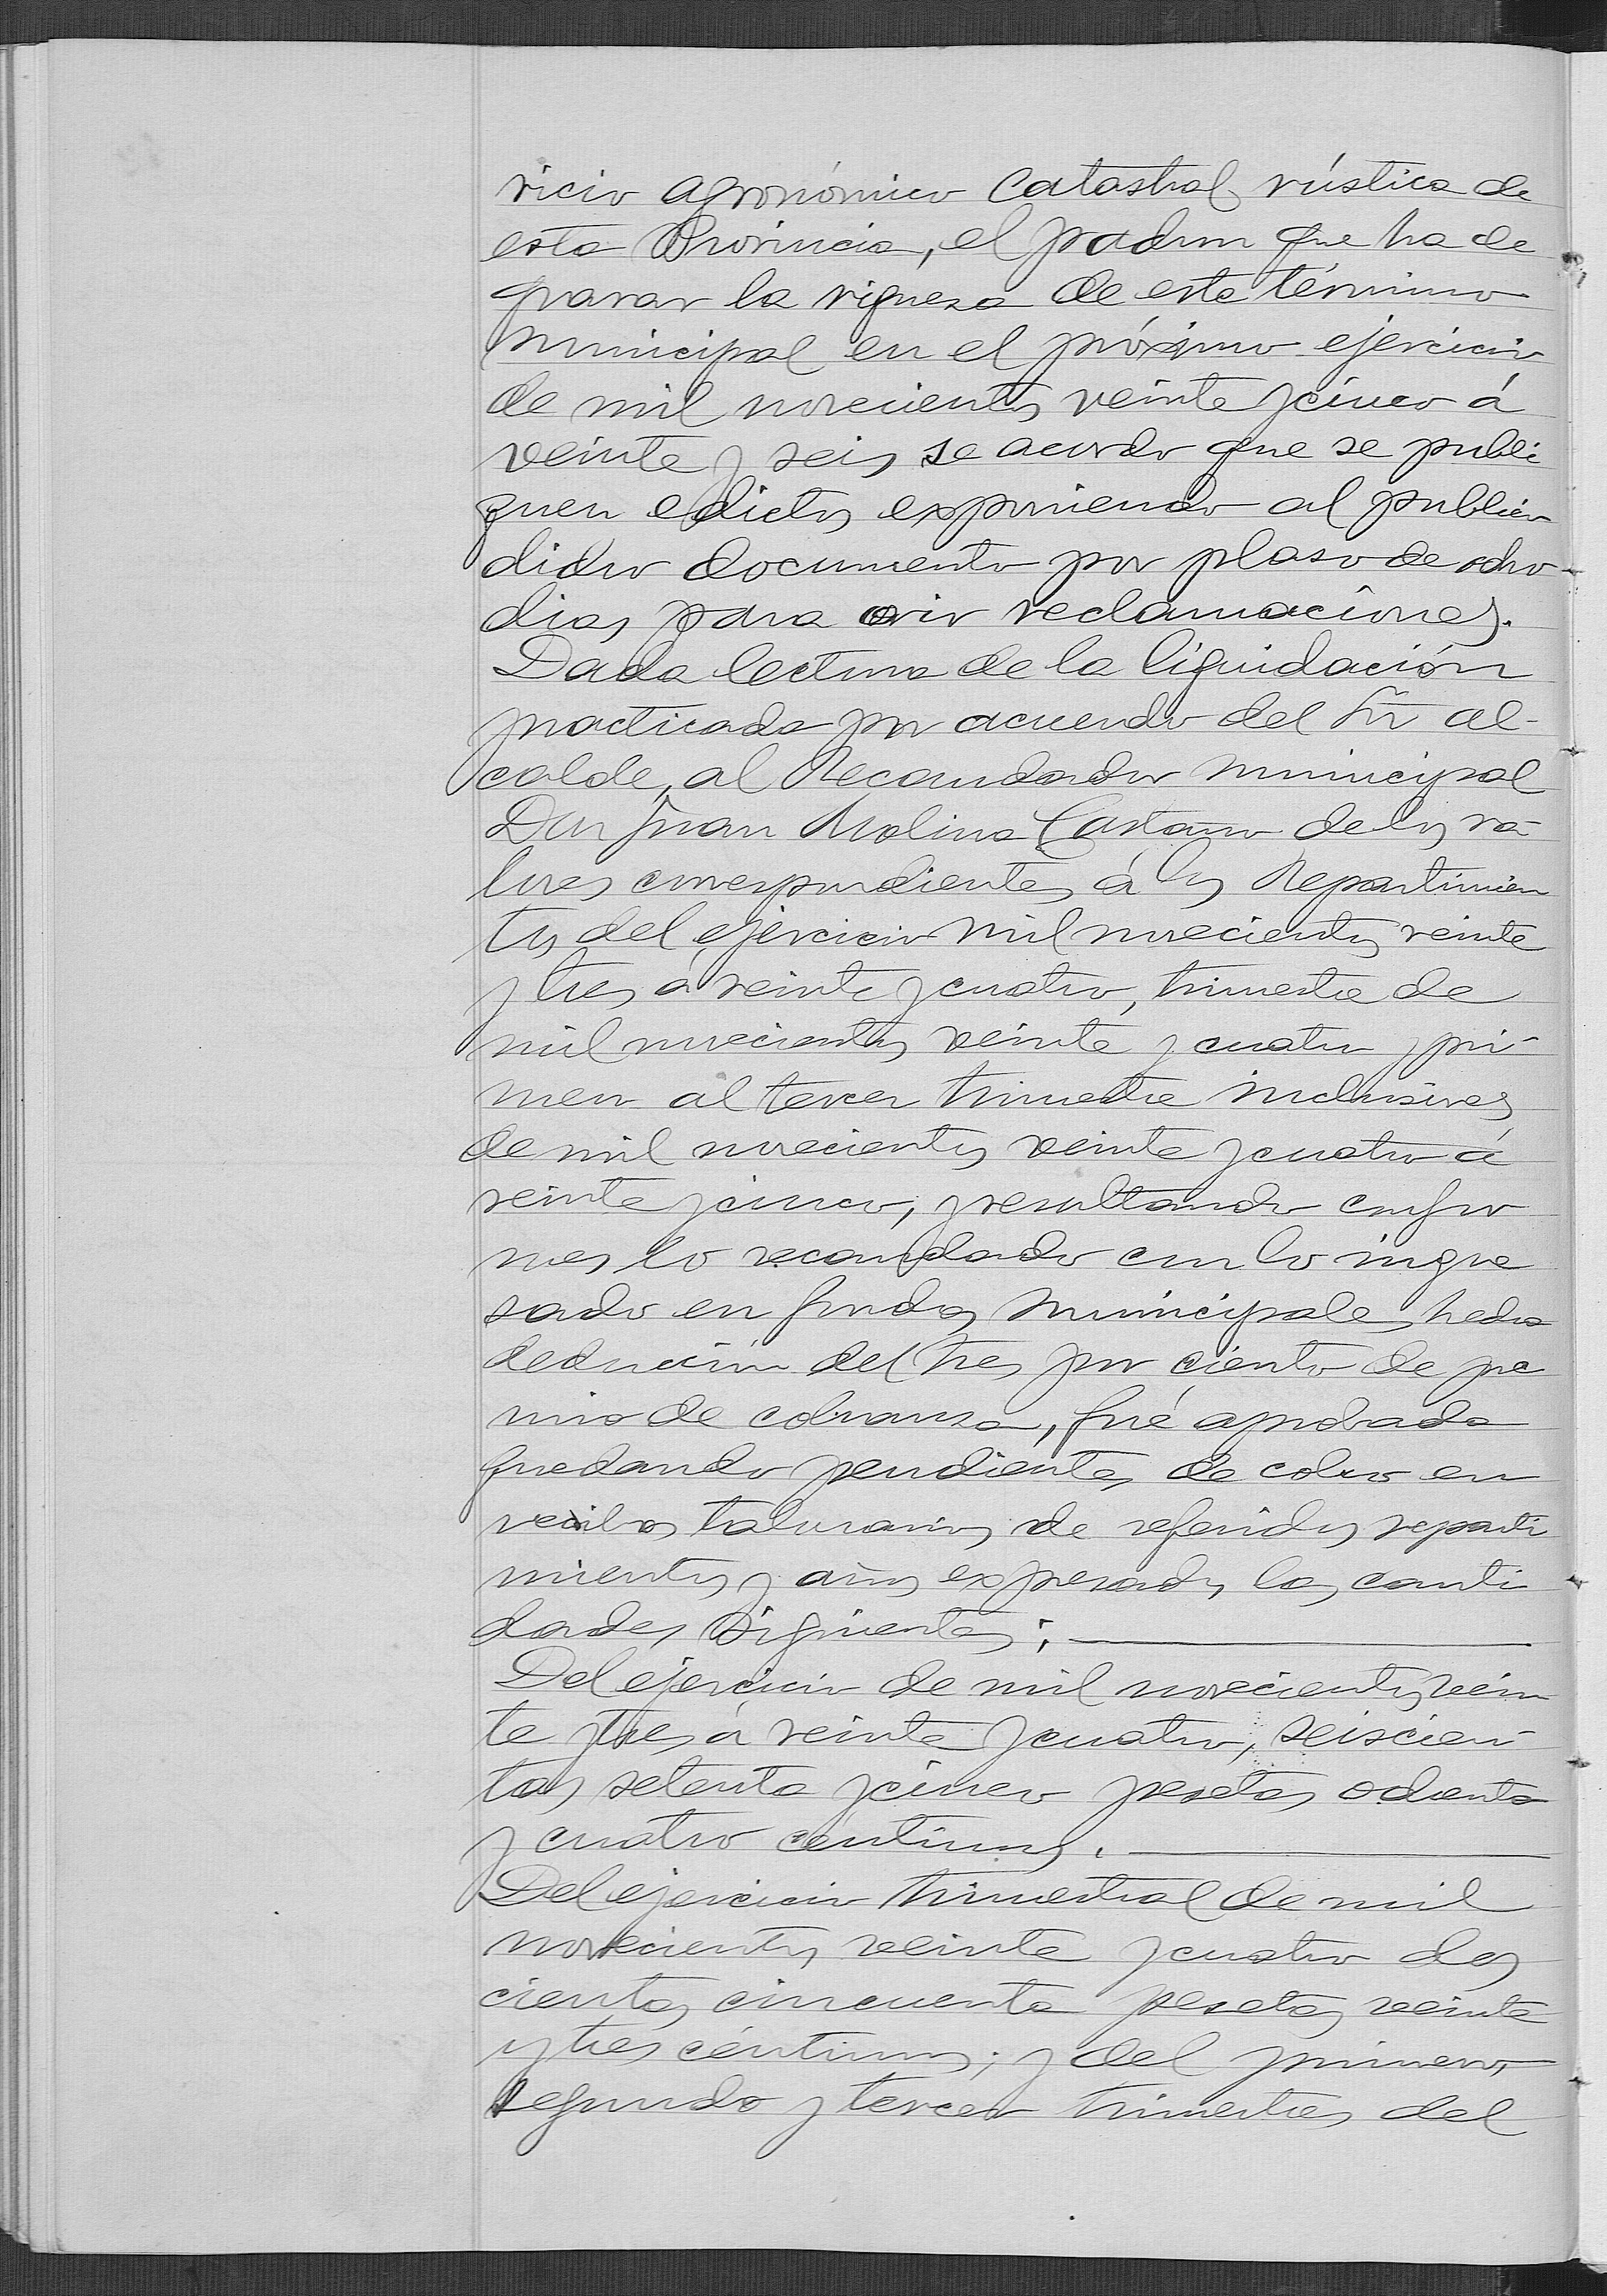 vicio agronómico Catastral rústica de
esta Provincia, el padron que ha de
gravar la riqueza de este término
municipal en el próximo ejercicio
de mil novecientos veinte y cinco á
veinte y seis se acordo que se publi
quen edictos exponiendo al publico
dicho documento por plaso de ocho
dias para oir reclamaciones.
Dada lectura de la liquidación
practicada por acuerdo del Sr al-
calde, al Recaudador municipal
Don Juan Molina Castaño de los va-
lores correspondientes á los Repartimien
tos del ejercicio mil novecientos veinte
y tres á veinte y cuatro, trimestre de
mil novecientos veinte y cuatro y pri-
mero al tercer trimestre inclusives
de mil novecientos veinte y cuatro á
veinte y cinco, y resultando confor
mes lo recaudado con lo ingre
sado en fondos municipales hecha
deducción del tres por ciento de pre
mio de cobranza, fué aprobada
quedando pendientes de cobro en
recibos talonarios de referidos reparti
mientos y años expresados las canti
dades siguientes:
Del ejercicio de mil novecientos vein
te y tres á veinte y cuatro, seiscien-
tas setenta y cinco pesetas ochenta
y cuatro céntimos.
Del ejercicio trimestral de mil
novecientos veinte y cuatro dos
cientas cincuenta pesetas veinte
y tres céntimos; y del primero,
segundo y tercer trimestres del